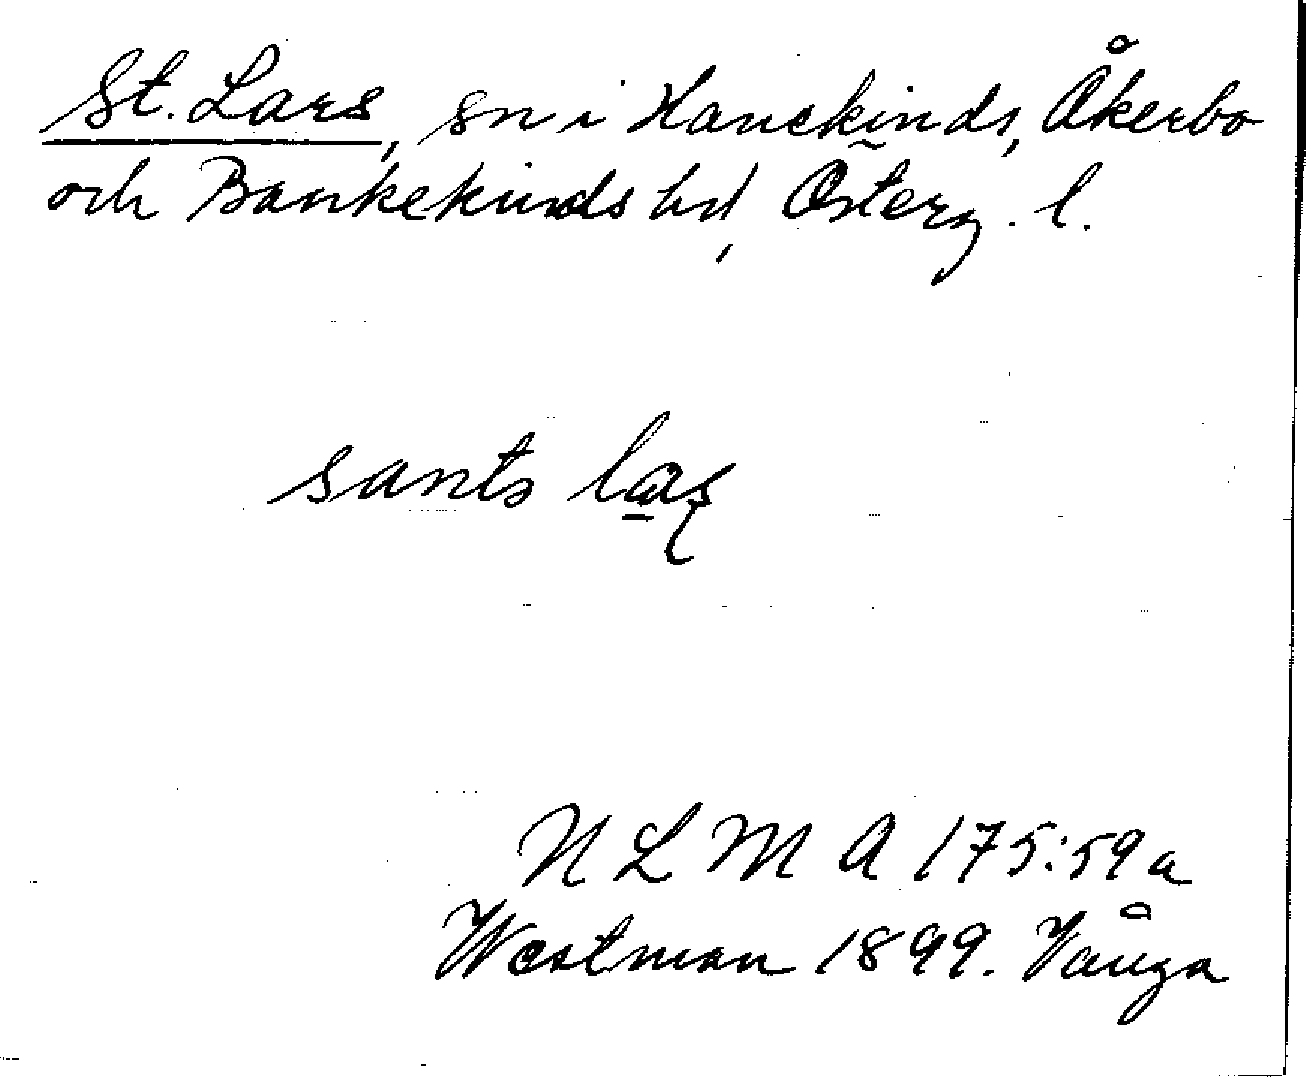 St. Lars, sn i Hanekinds, Åkerbo
och Bankekinds hd, Österg. l.
sants la̲ʂ
N L M A 175:59a
Westman 1899. Vånga